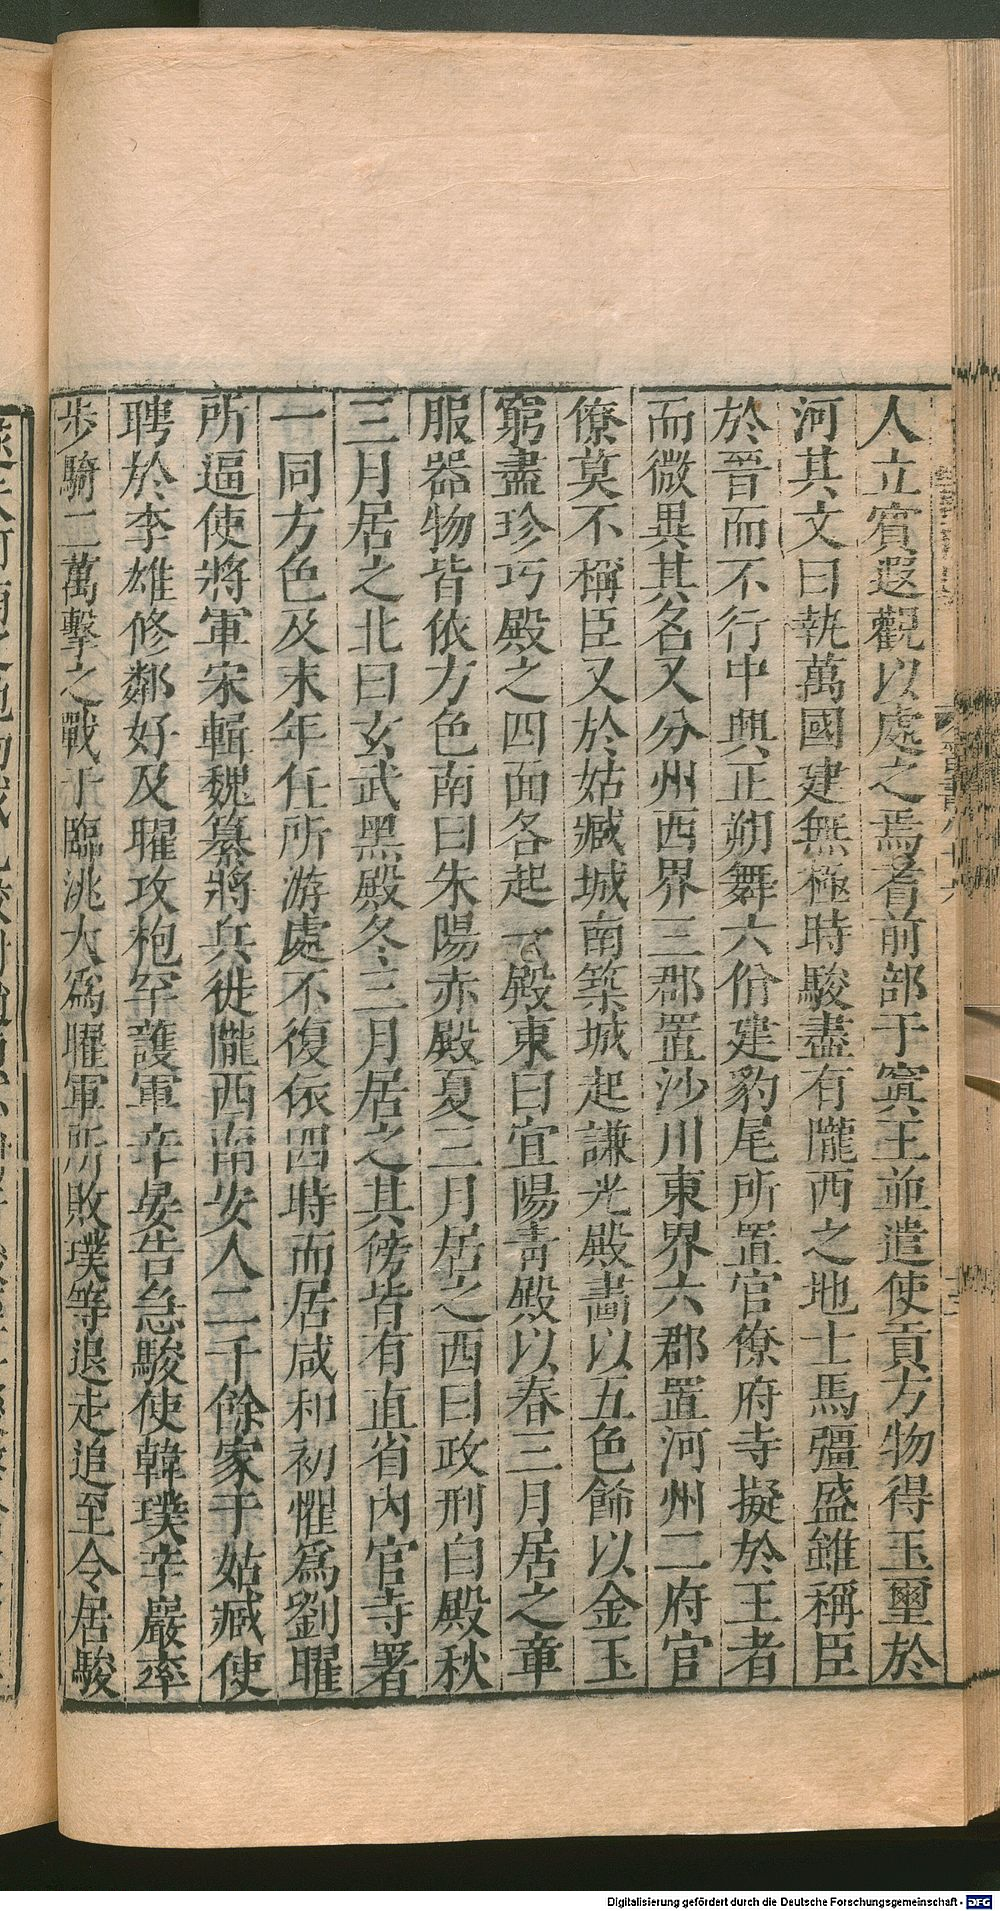 人立賓遐觀以處之焉耆前部于窴王並遣使貢方物得玉璽於
河其文曰執萬國建無極時駿盡有隴西之地士馬彊盛雖稱臣
於晉而不行中興正朔舞六佾建豹尾所置官僚府寺擬於王者
而微異其名又分州西界三郡置沙州東界六郡置河州二府官
僚莫不稱臣又於姑臧城南築城起謙光殿畫以五色飾以金玉
窮盡珍巧殿之四面各起一殿東曰宜陽青殿以春三月居之章
服器物皆依方色南曰朱陽赤殿夏三月居之西曰政刑白殿秋
三月居之北曰玄武黑殿冬三月居之其傍皆有直省內官寺署
一同方色及末年任所游處不復依四時而居咸和初懼爲劉曜
所逼使將軍宋輯魏纂將兵徙隴西南安人二千餘家于姑臧使
聘於李雄修鄰好及曜攻枹罕護軍辛晏告急駿使韓璞辛巖率
步騎二萬擊之戰于臨洮大爲曜軍所敗璞等退走追至令居駿
Digitalisierung gefördert durch die Deutsche Forschungsgemeinschaft - DFG